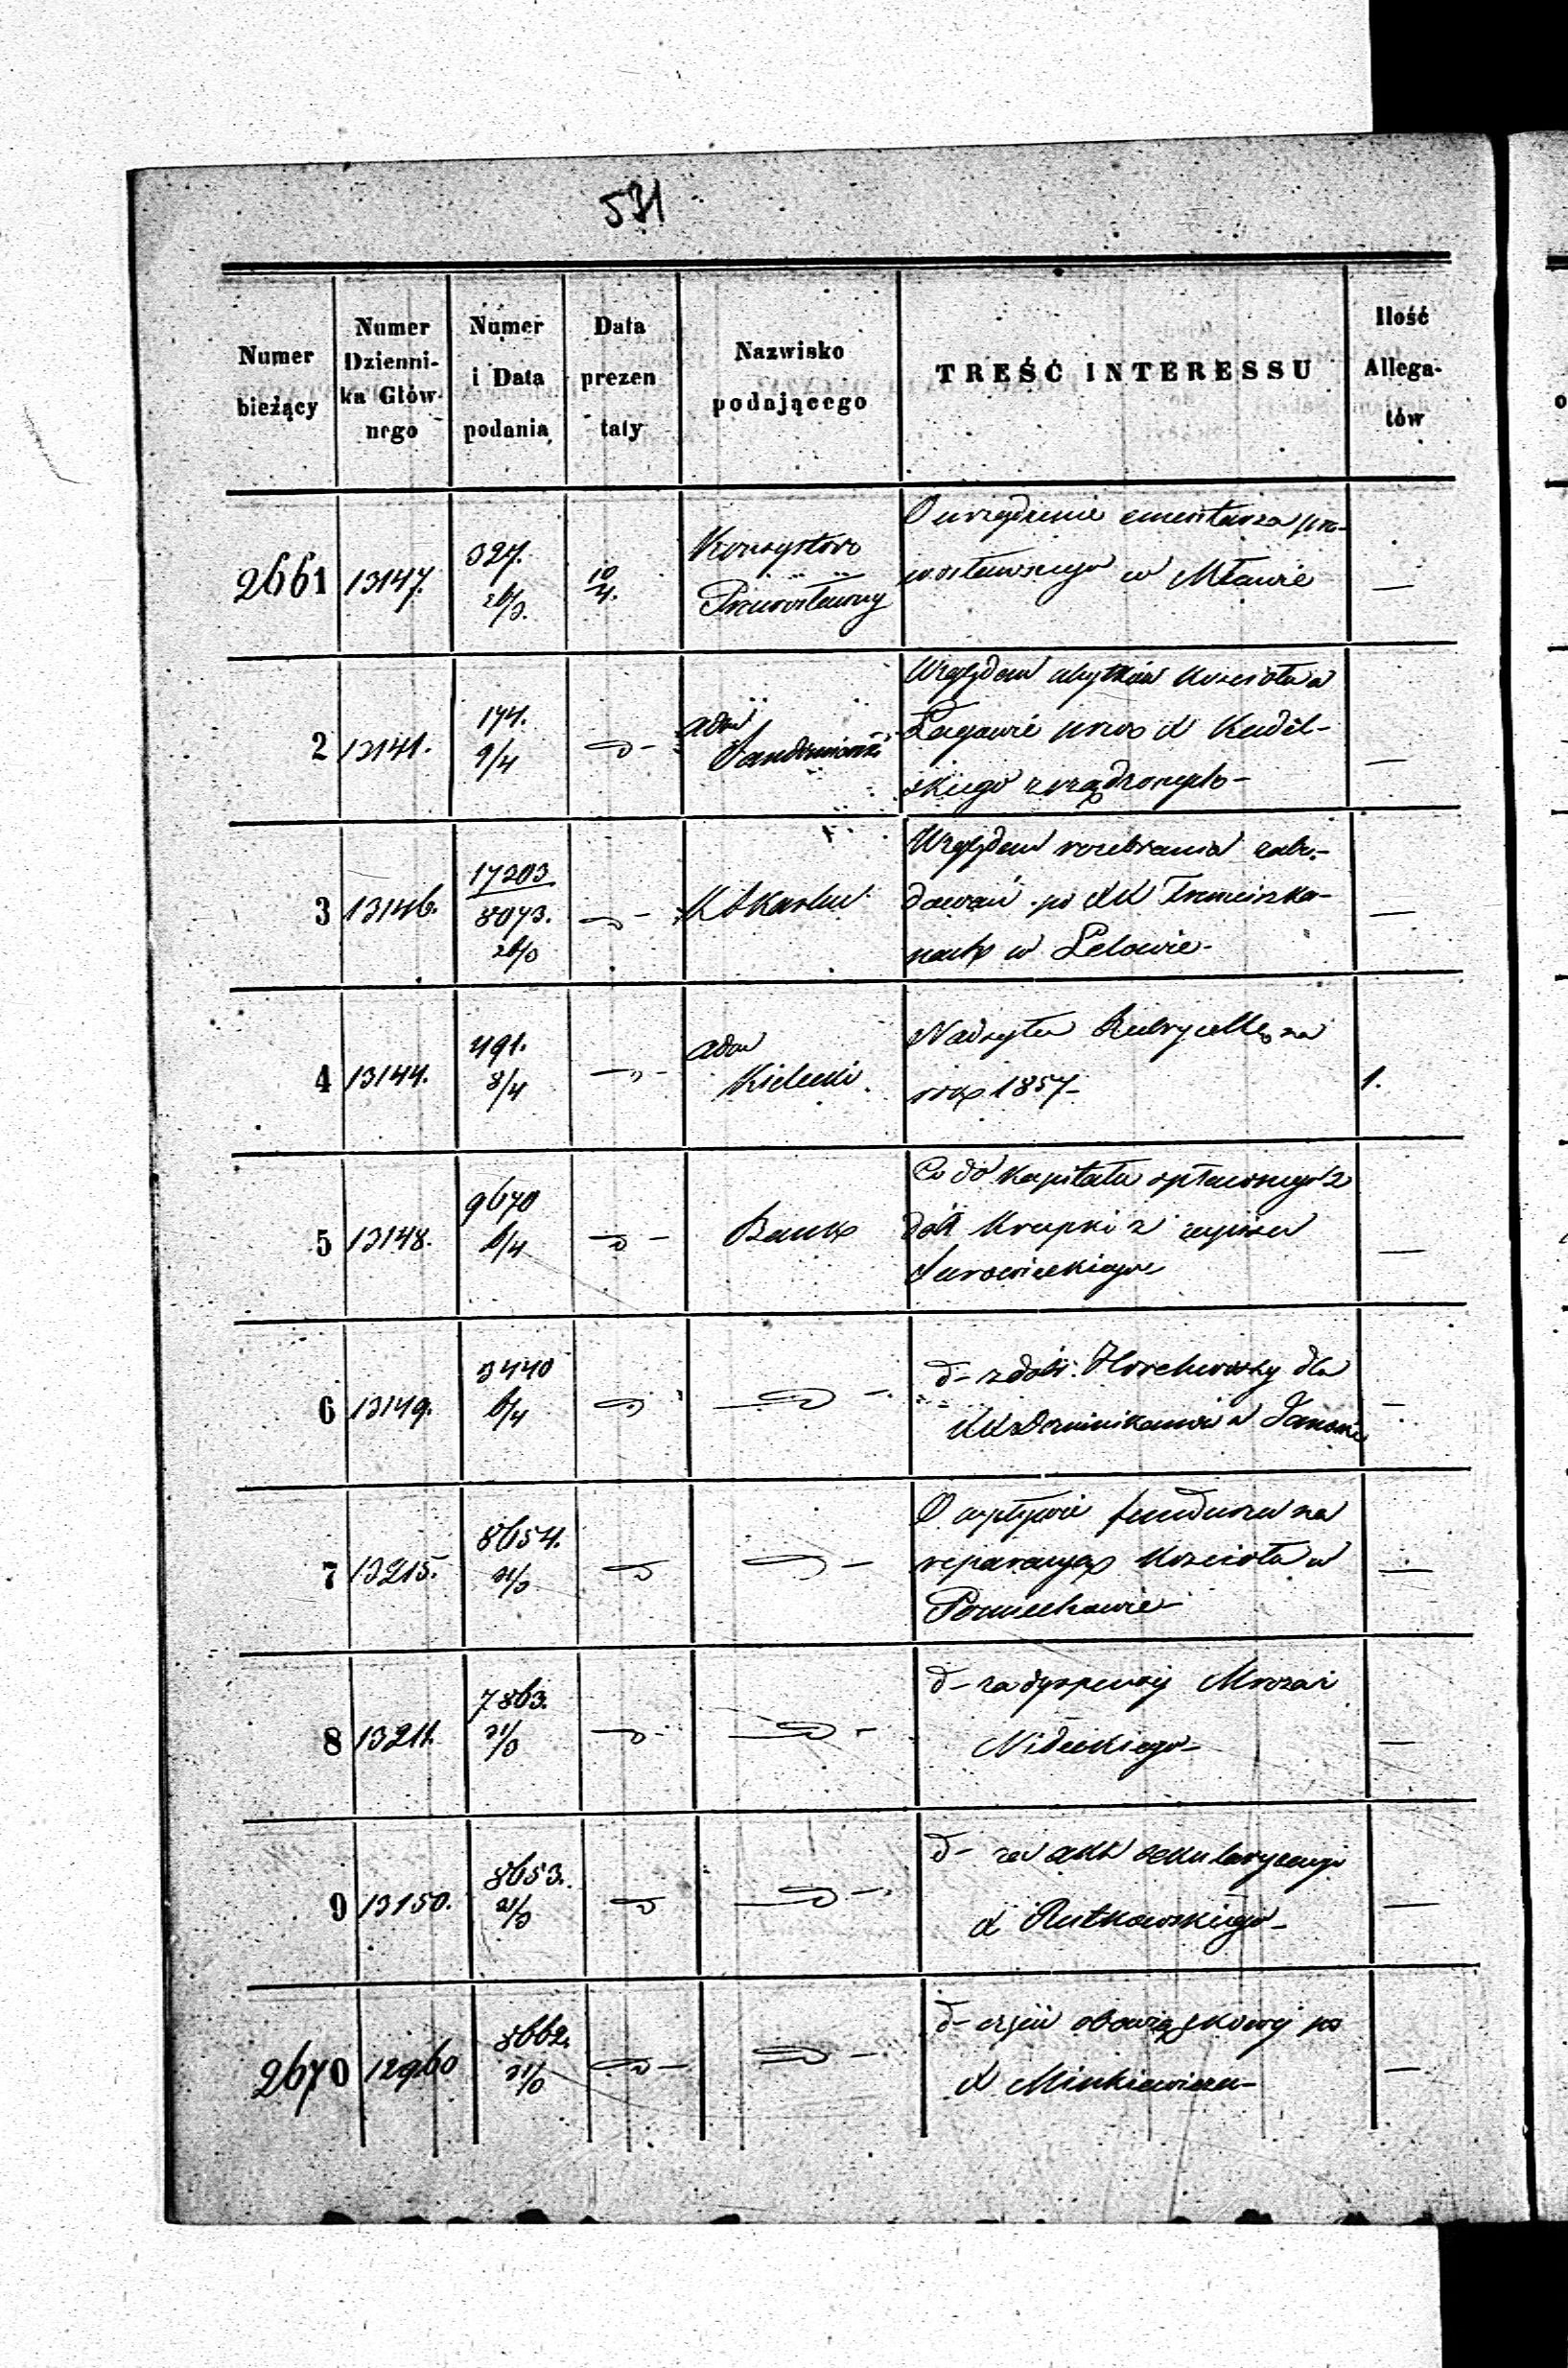 531
Numer bieżący
Numer Dziennika Głównego
Numer i Data podania
Data prezentaty
Nazwisko podającego
TREŚĆ INTERESSU
Ilość Allegatów
2661 13147. 327. 26/3. 10/4. Konsystorz Prawosławny
O urządzenie cmentarza pra-
wosławnego w Mławie —
2 13141. 174. 9/4 d- adm Sandomierski
Względem użytków kościoła w
Łagowie przez X Kudel-
skiego zrządzonych -
3 13146. 17203 8073. 26/3 d-
Względem rozebrania zabu-
dowań po XX Franciszka-
nach w Lelowie -
4 13144. 491. 8/4 d- adm Kielecki
Nadsyła Rubrycellę na
rok 1857- 1.
5 13148. 9670 6/4 d- Bank
Co do kapitału spłaconego z
dóbr Krupki z zapisu
Surowieckiego
6 13149. 3440 6/4 d- d-
d- z dóbr dla
XX Dominikanów w Janowie
7 13215. 8654. 31/3 d- d-
O wpływie funduszu na
reparacyą kościoła w
Pomiechowie -
8 13211. 7863. 31/3 d- d-
d- za dyspensy Mroza i
Nideckiego -
9 13150. 8653. 31/3 d- d-
d- za akt sekularyzacyi
X Rutkowskiego -
2670 12960 8662. 31/3 d- d-
d- części obowiązkowej po
X Minkiewiczu -